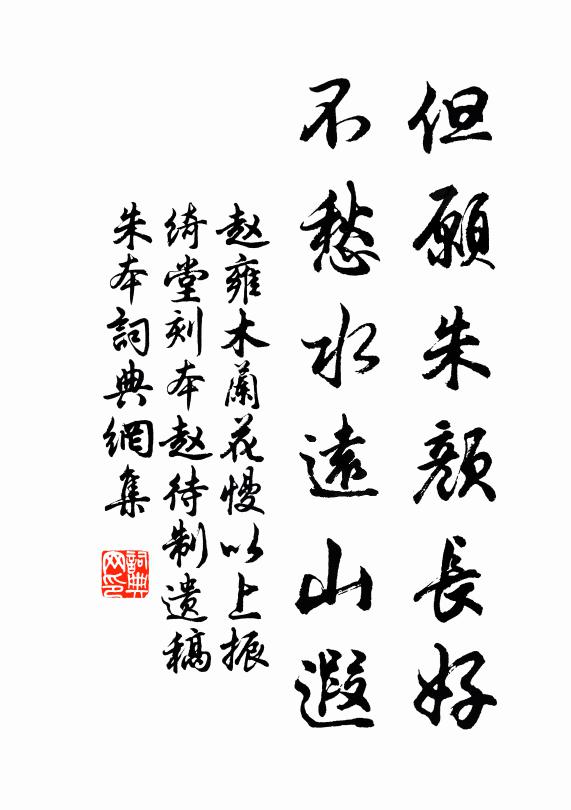 但願朱颜長好
不愁水遠山遐
赵雍木蘭花慢以上振
绮堂刻本赵待制遗稿
朱本詞典網集
詞典网印